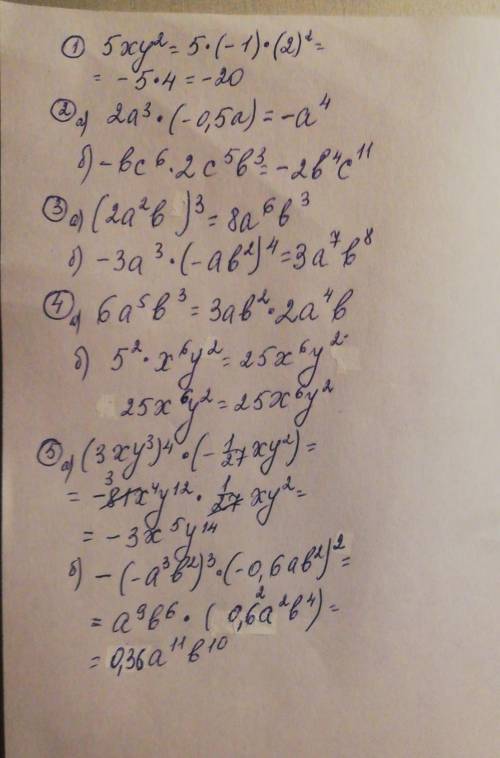 ① 5xy² = 5·(-1)·(2)² =
= -5·4 = -20
② а) 2a³·(-0,5a) = -a⁴
б) -bc⁶·2c⁵b³ = -2b⁴c¹¹
③ а) (2a²b)³ = 8a⁶b³
б) -3a³·(-ab²)⁴ = 3a⁷b⁸
④ а) 6a⁵b³ = 3ab²·2a⁴b
б) 5²·x⁶y² = 25x⁶y²
25x⁶y² = 25x⁶y²
⑤ а) (3xy³)⁴·(-1/27 xy²) =
= -81³x⁴y¹²·1/27 xy² =
= -3x⁵y¹⁴
б) -(-a³b²)³·(-0,6ab²)² =
= a⁹b⁶·(0,6²a²b⁴) =
= 0,36a¹¹b¹⁰